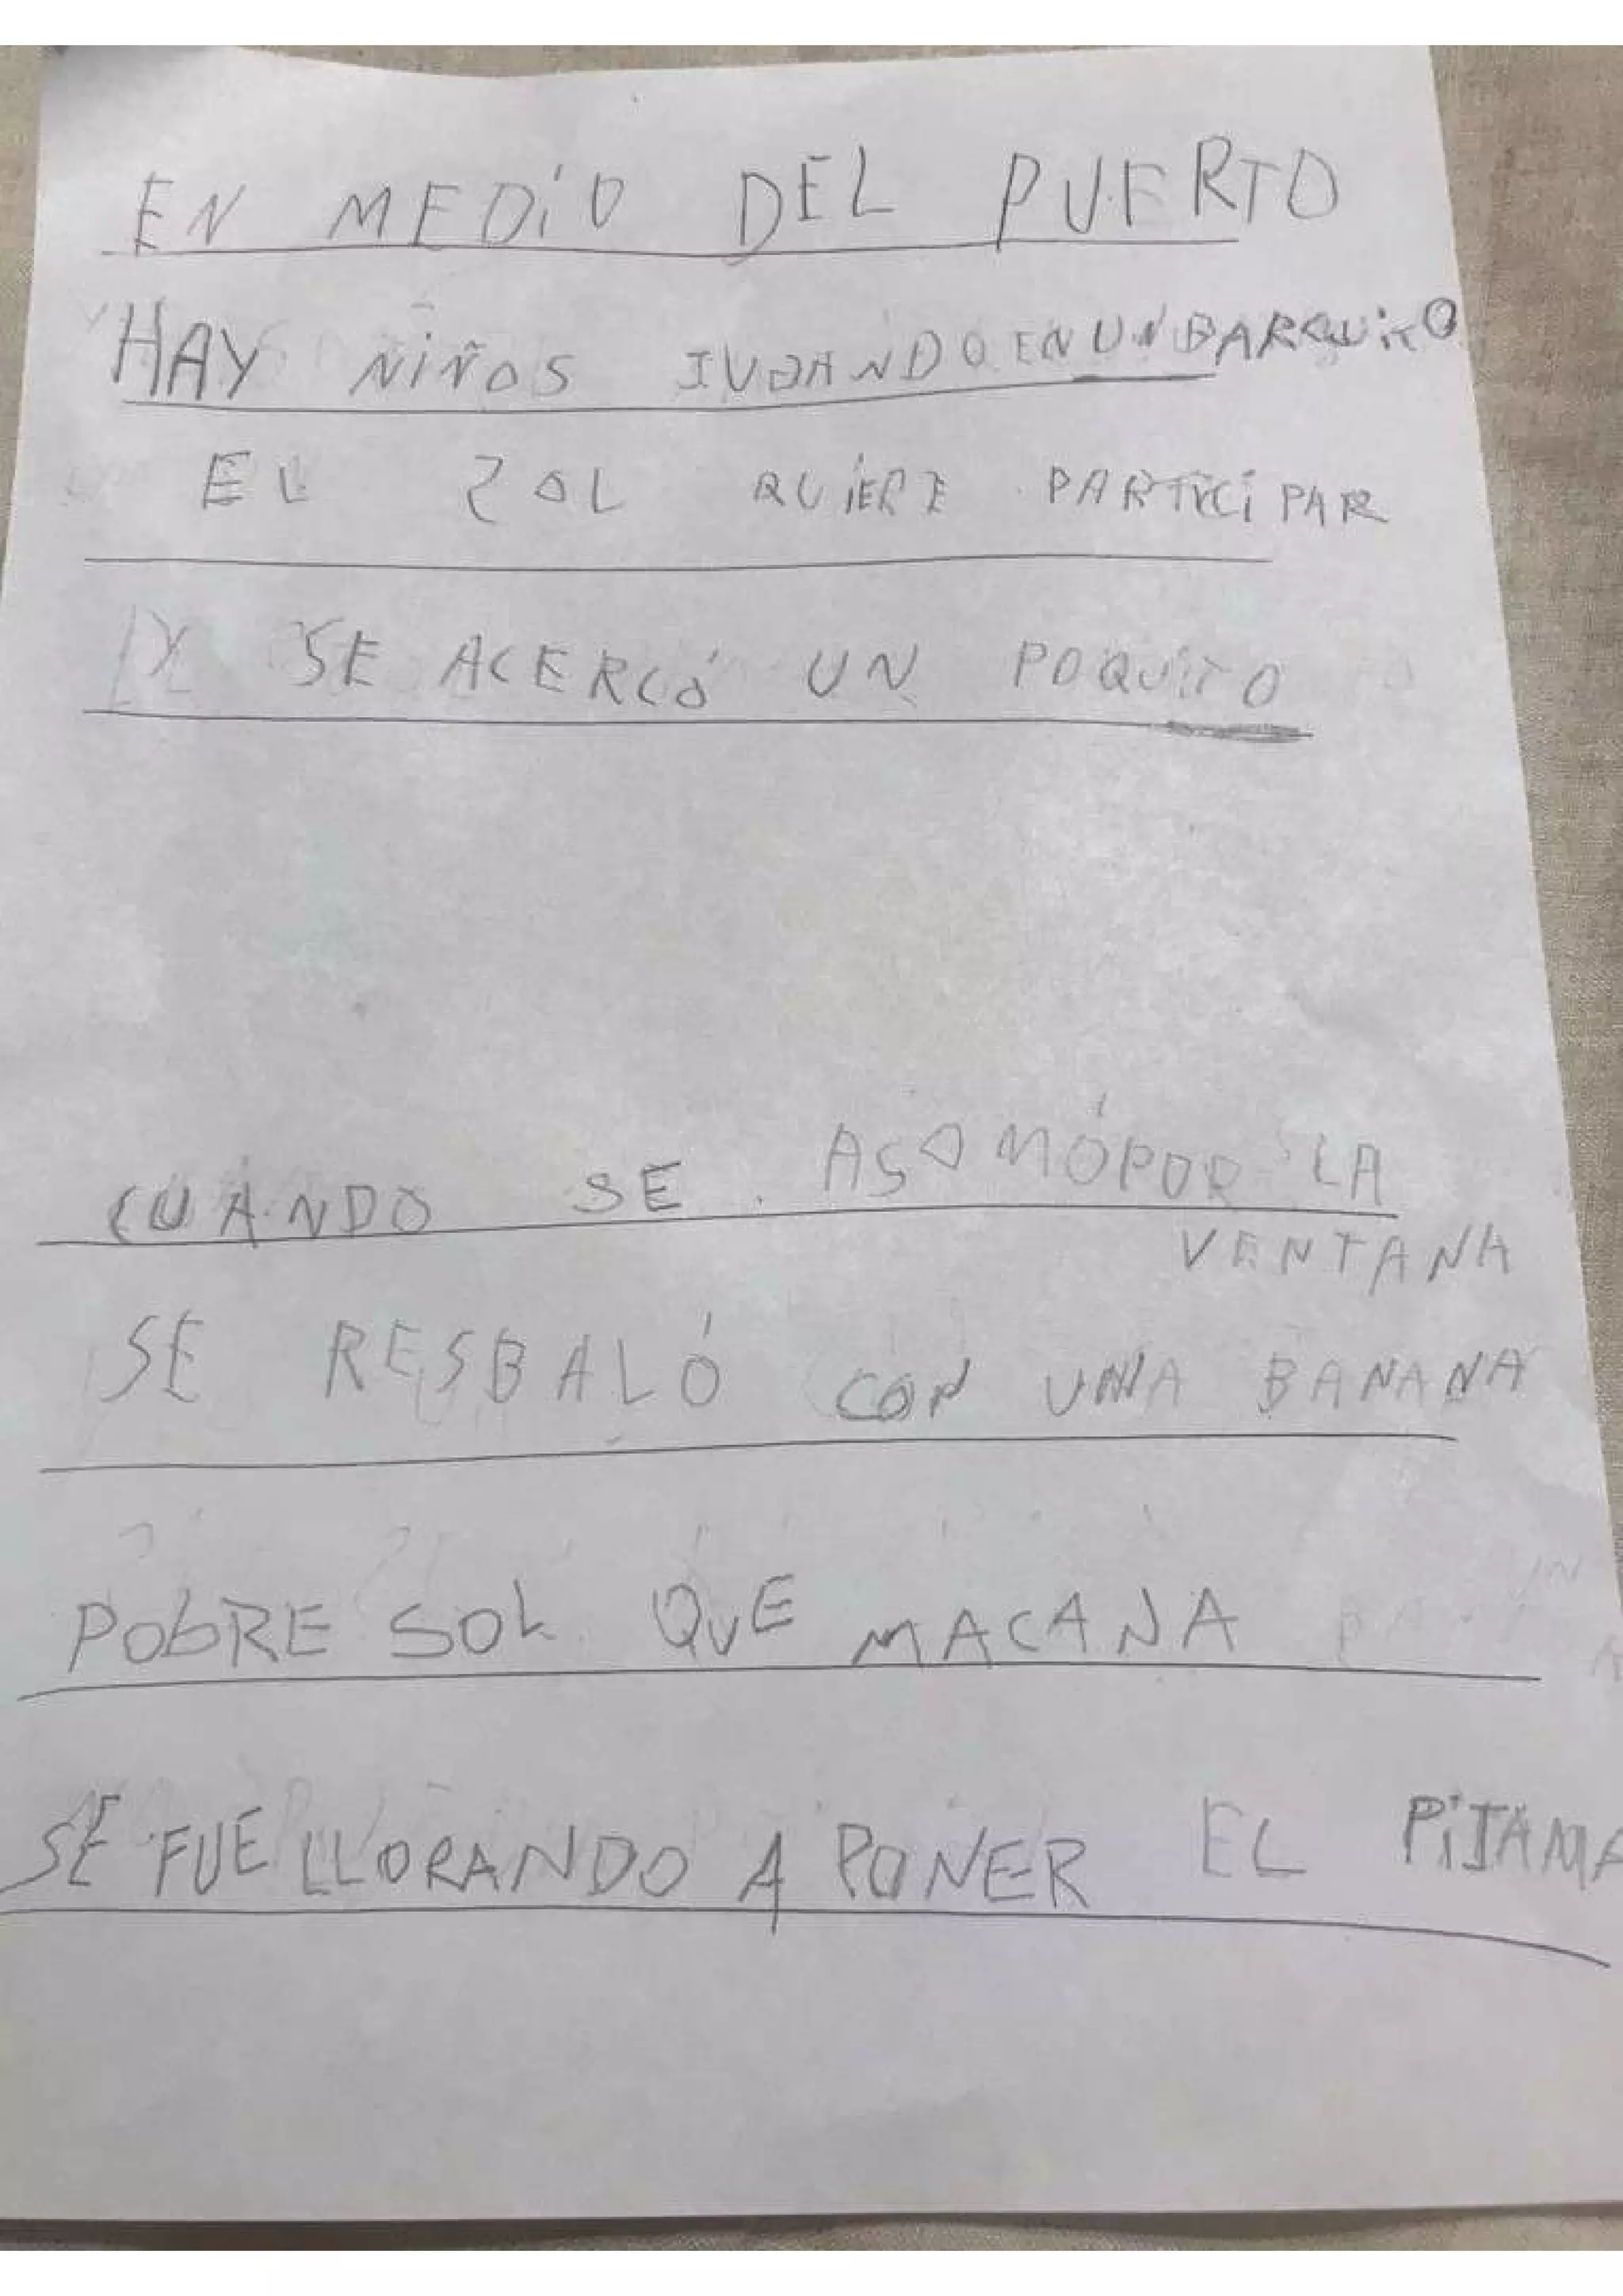 EN MEDIO DEL PUERTO
HAY NIÑOS JUGANDO EN UN BARQUITO
EL SOL QUIERE PARTICIPAR
Y SE ACERCÓ UN POQUITO
CUANDO SE ASOMÓ POR LA
VENTANA
SE RESBALÓ CON UNA BANANA
POBRE SOL QUE MACANA
SE FUE LLORANDO A PONER EL PIJAMA